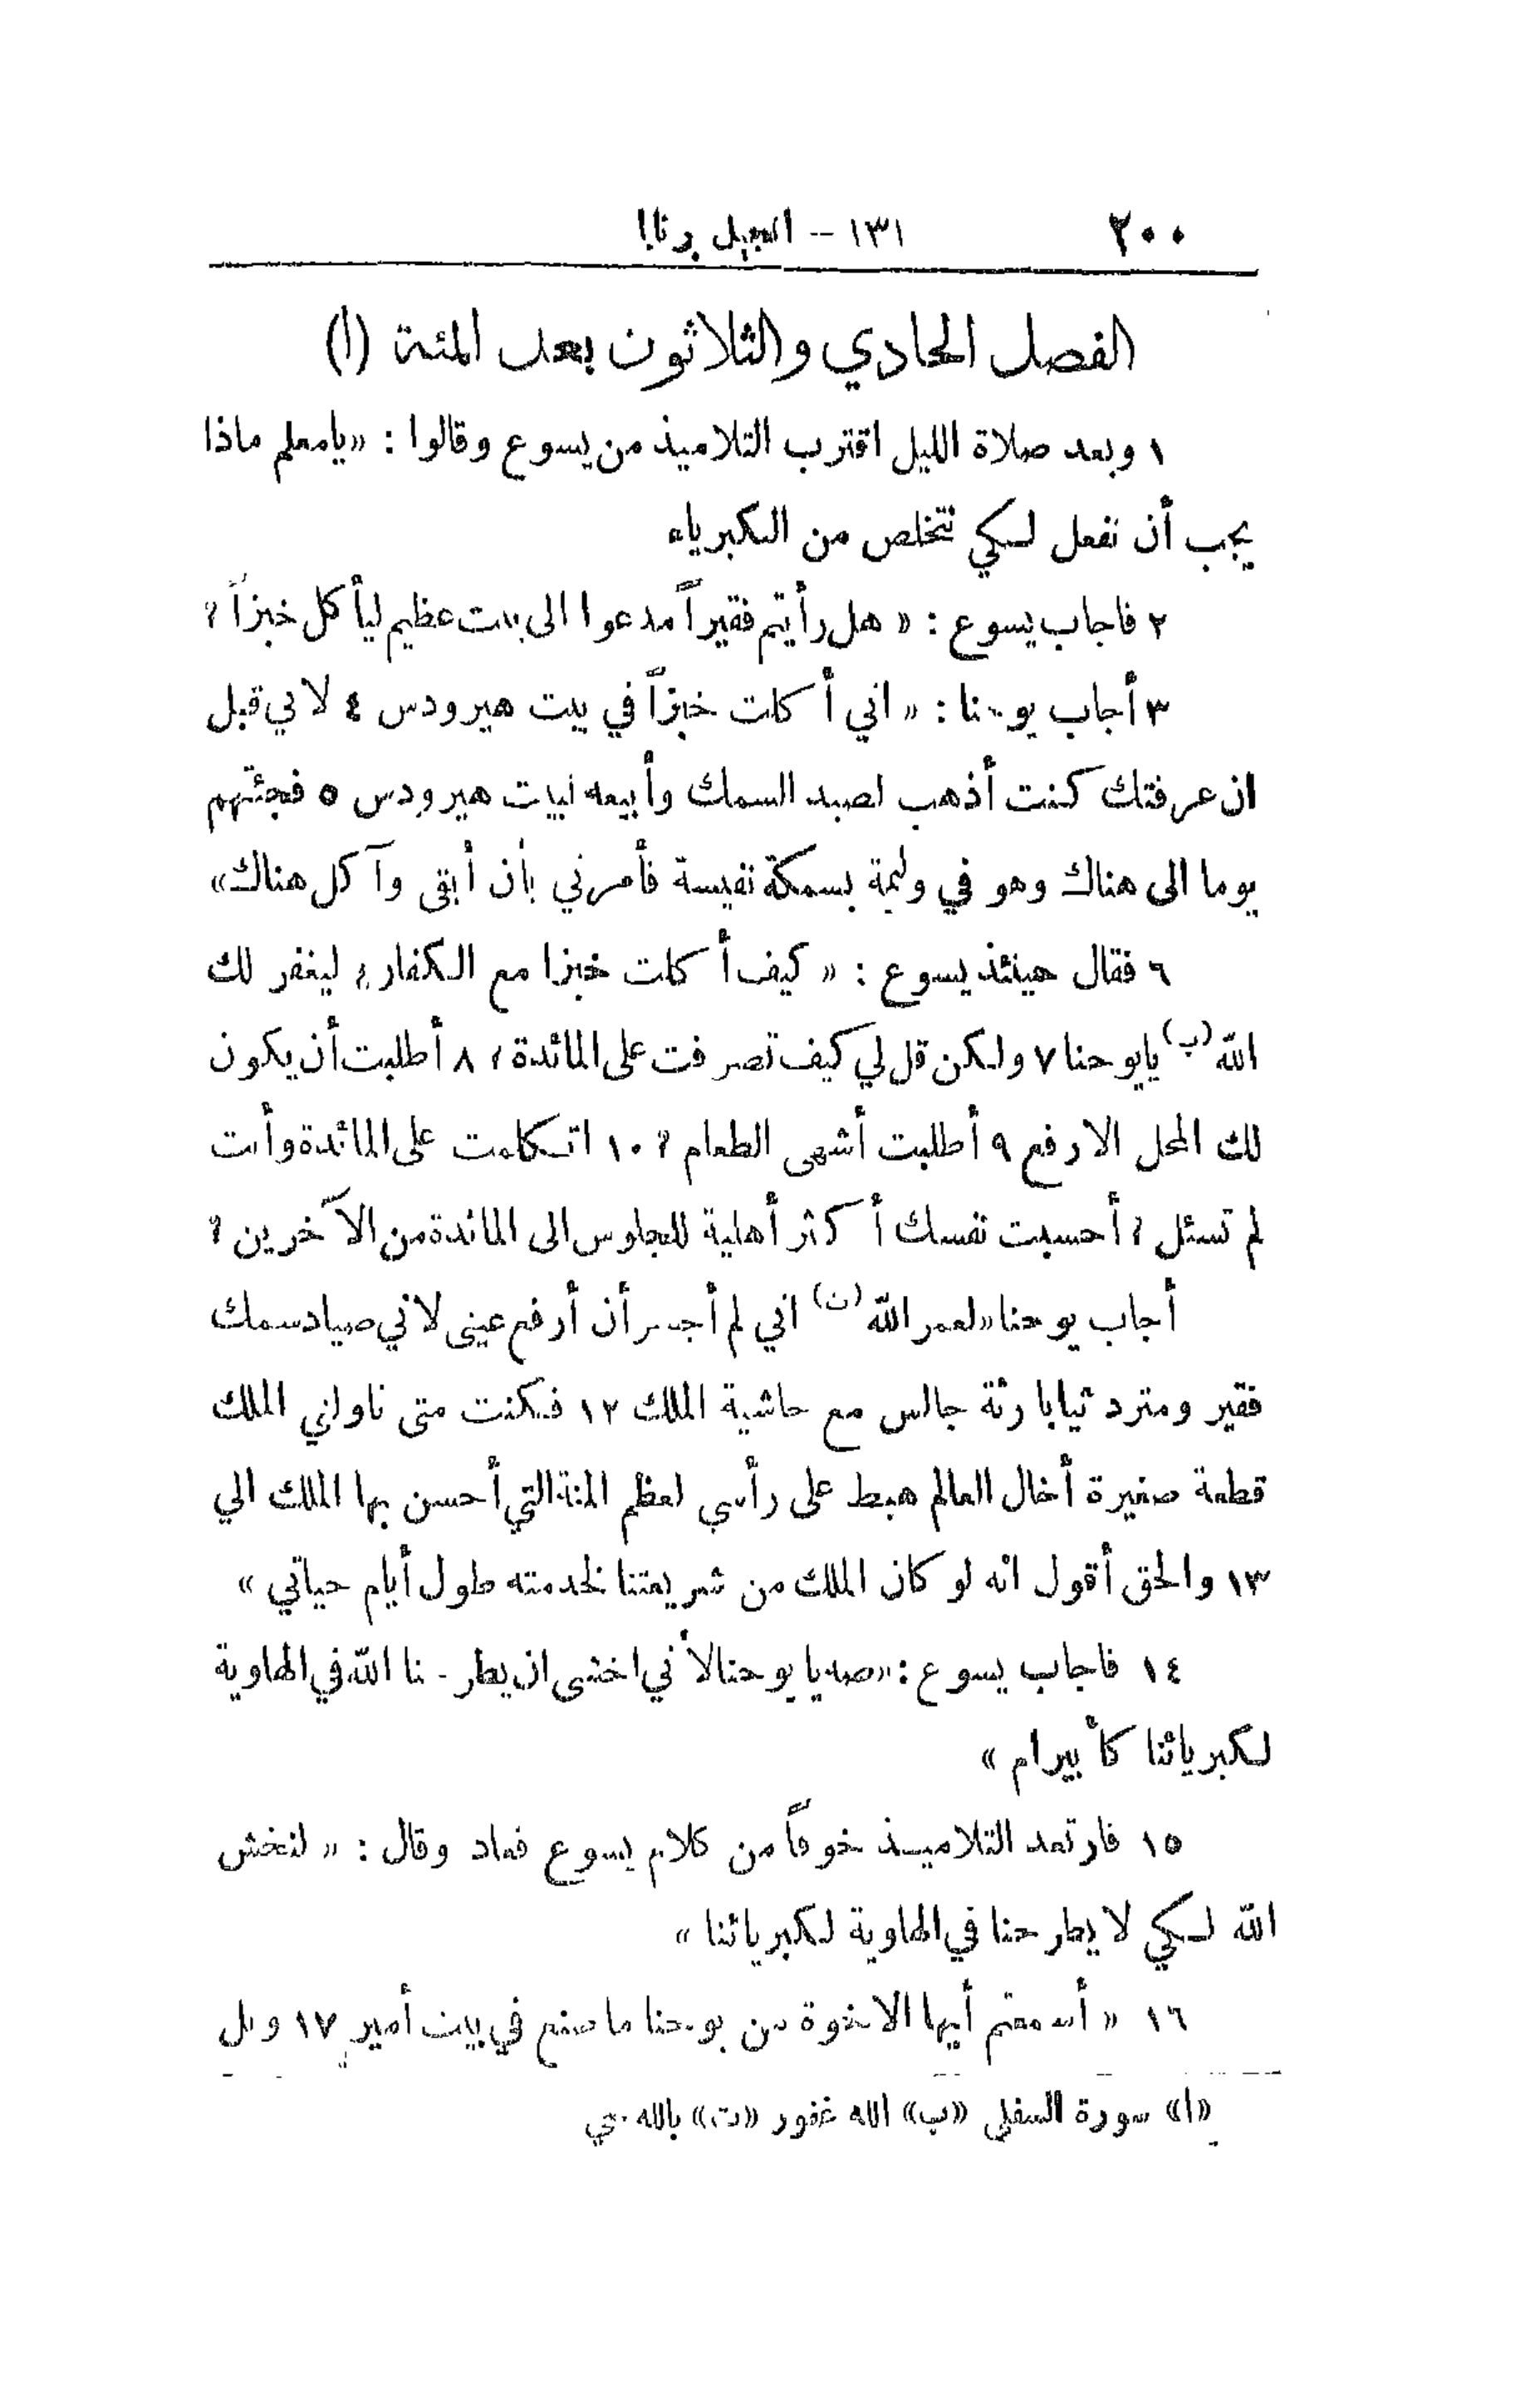 ٢٠٠ ١٣١ – انجيل برنابا
الفصل الحادي والثلاثون بعد المئة (ا)
١ وبعد صلاة الليل اقترب التلاميذ من يسوع وقالوا : «يامعلم ماذا
يجب أن نفعل لكي نتخلص من الكبرياء
٢ فاجاب يسوع : « هل رأيتم فقيراً مدعوا الى بيت عظيم ليأكل خبزاً ؟
٣ أجاب يوحنا : « اني أكلت خبزاً في بيت هيرودس ٤ لاني قبل
ان عرفتك كنت أذهب لصيد السمك وأبيعه لبيت هيرودس ٥ فجئتهم
يوما الى هناك وهو في وليمة بسمكة نفيسة فأمرني بأن أبقى وآكل هناك»
٦ فقال حينئذ يسوع : « كيف أكلت خبزا مع الكفار ؟ ليغفر لك
الله (ب) يايوحنا ٧ ولكن قل لي كيف تصرفت على المائدة ؟ ٨ أطلبت أن يكون
لك المحل الارفع ٩ أطلبت أشهى الطعام ؟ ١٠ اتكلمت على المائدة وأنت
لم تسئل ؟ أحسبت نفسك أكثر أهلية للجلوس الى المائدة من الآخرين ؟
أجاب يوحنا «لعمر الله (ت) اني لم أجسر أن أرفع عيني لاني صياد سمك
فقير ومترد ثيابا رثة جالس مع حاشية الملك ١٢ فكنت متى ناولني الملك
قطعة صغيرة أخال العالم هبط على رأسي لعظم المنة التي أحسن بها الملك الي
١٣ والحق أقول انه لو كان الملك من شريعتنا لخدمته طول أيام حياتي »
١٤ فاجاب يسوع : «صه يا يوحنا لأني اخشى ان يطرحنا الله في الهاوية
لكبريائنا كأبيرام »
١٥ فارتعد التلاميذ خوفاً من كلام يسوع فعاد وقال : « لنخش
الله لكي لا يطرحنا في الهاوية لكبريائنا »
١٦ « أسمعتم أيها الاخوة من يوحنا ما صنع في بيت أمير ١٧ ويل
«ا» سورة السفلي «ب» الله غفور «ت» بالله حي